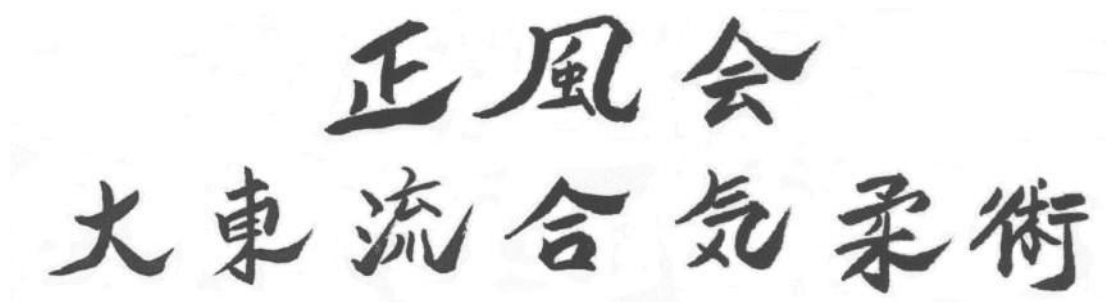 正風会
大東流合気柔術